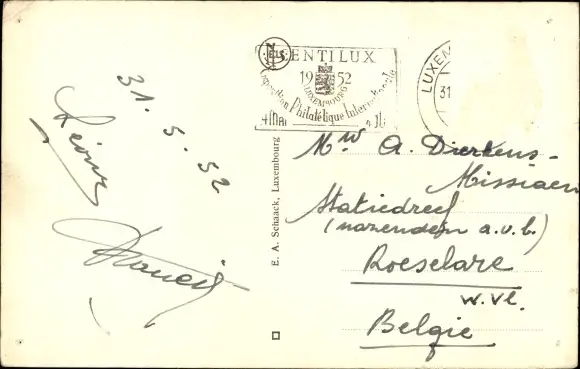 31.5.52
E. A. Schaack, Luxembourg
ELS
CENTILUX
1952
LUXEMBOURG
Exposition Philatélique Internationale
LUXEM
31
Mw A. Dierkens-
Missiaen
Statiedreef
(nazenden a.u.b.)
Roeselare
W.Vl.
Belgie